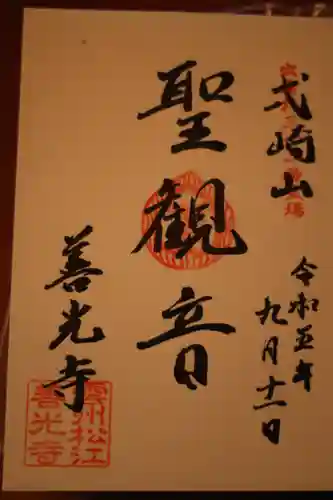 弍崎山
令和五年
九月十一日
聖観音
善光寺
雲州松江
善光寺